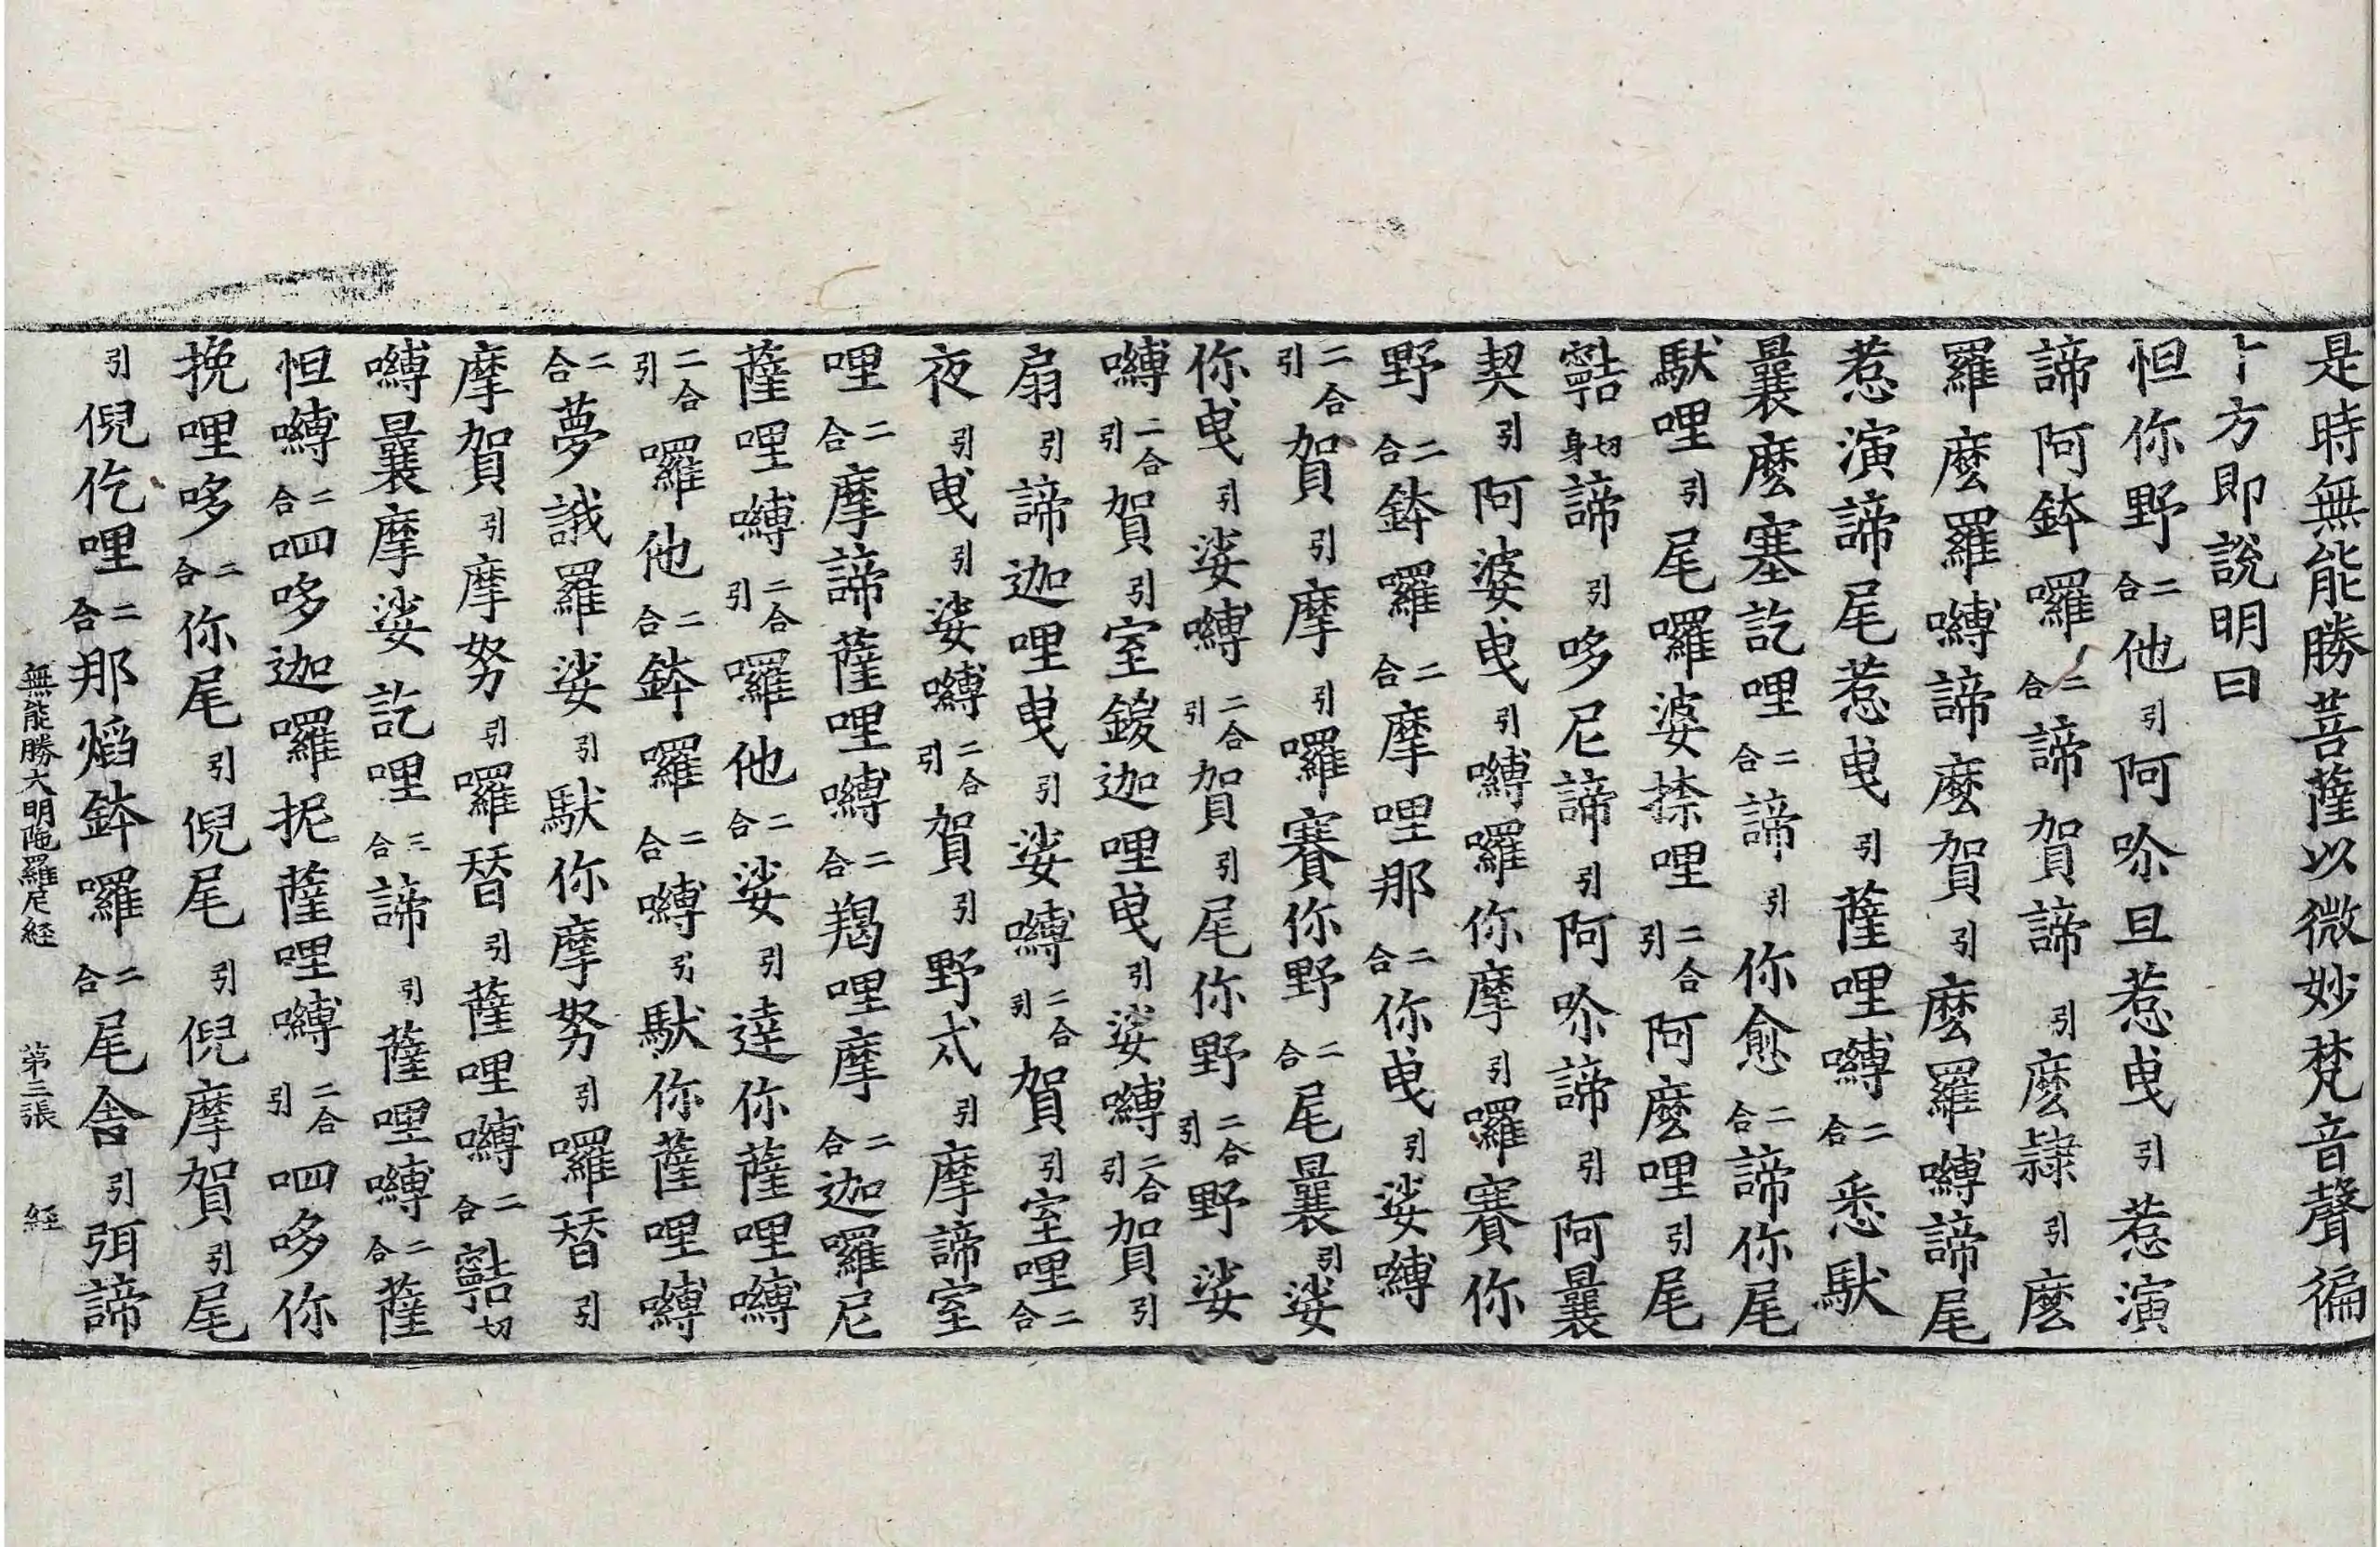 是時無能勝菩薩以微妙梵音聲徧
十方即說明曰
怛你野二合他引阿唥旦惹曵引惹演
諦阿鉢囉二合諦賀諦引麼隸引麼
羅麼羅嚩諦麼賀引麼羅嚩諦尾
惹演諦尾惹曵引薩哩嚩二合悉馱
曩麼塞訖哩二合諦引你愈二合諦你尾
馱哩引尾囉婆捺哩二合引阿麼哩引尾
切身諦引哆尼諦引阿唥諦引阿曩
契引阿婆曵引嚩囉你摩引囉賽你
野二合鉢囉二合摩哩那二合你曵引娑嚩
二合引賀引摩引囉賽你野二合尾曩引娑
你曵引娑嚩二合引賀引尾你野二合引野娑
嚩二合引賀引室鍐迦哩曵引娑嚩二合引賀引
扇引諦迦哩曵引娑嚩二合引賀引室哩二合
夜引曵引娑嚩二合引賀引野忒引摩諦室
哩二合摩諦薩哩嚩二合羯哩摩二合迦囉尼
薩哩嚩二合引囉他二合娑引達你薩哩嚩
二合引囉他二合鉢囉二合嚩引馱你薩哩嚩
二合夢誐羅娑引馱你摩努引囉替引
摩賀引摩努引囉替引薩哩嚩二合切
嚩曩摩娑訖哩三合諦引薩哩嚩二合薩
怛嚩二合呬哆迦囉抳薩哩嚩二合引呬哆你
挽哩哆二合你尾引倪尾引倪摩賀引尾
引倪仡哩二合那熖鉢囉二合尾舎引弭諦
無能勝大明陁羅尼経 第三張 経